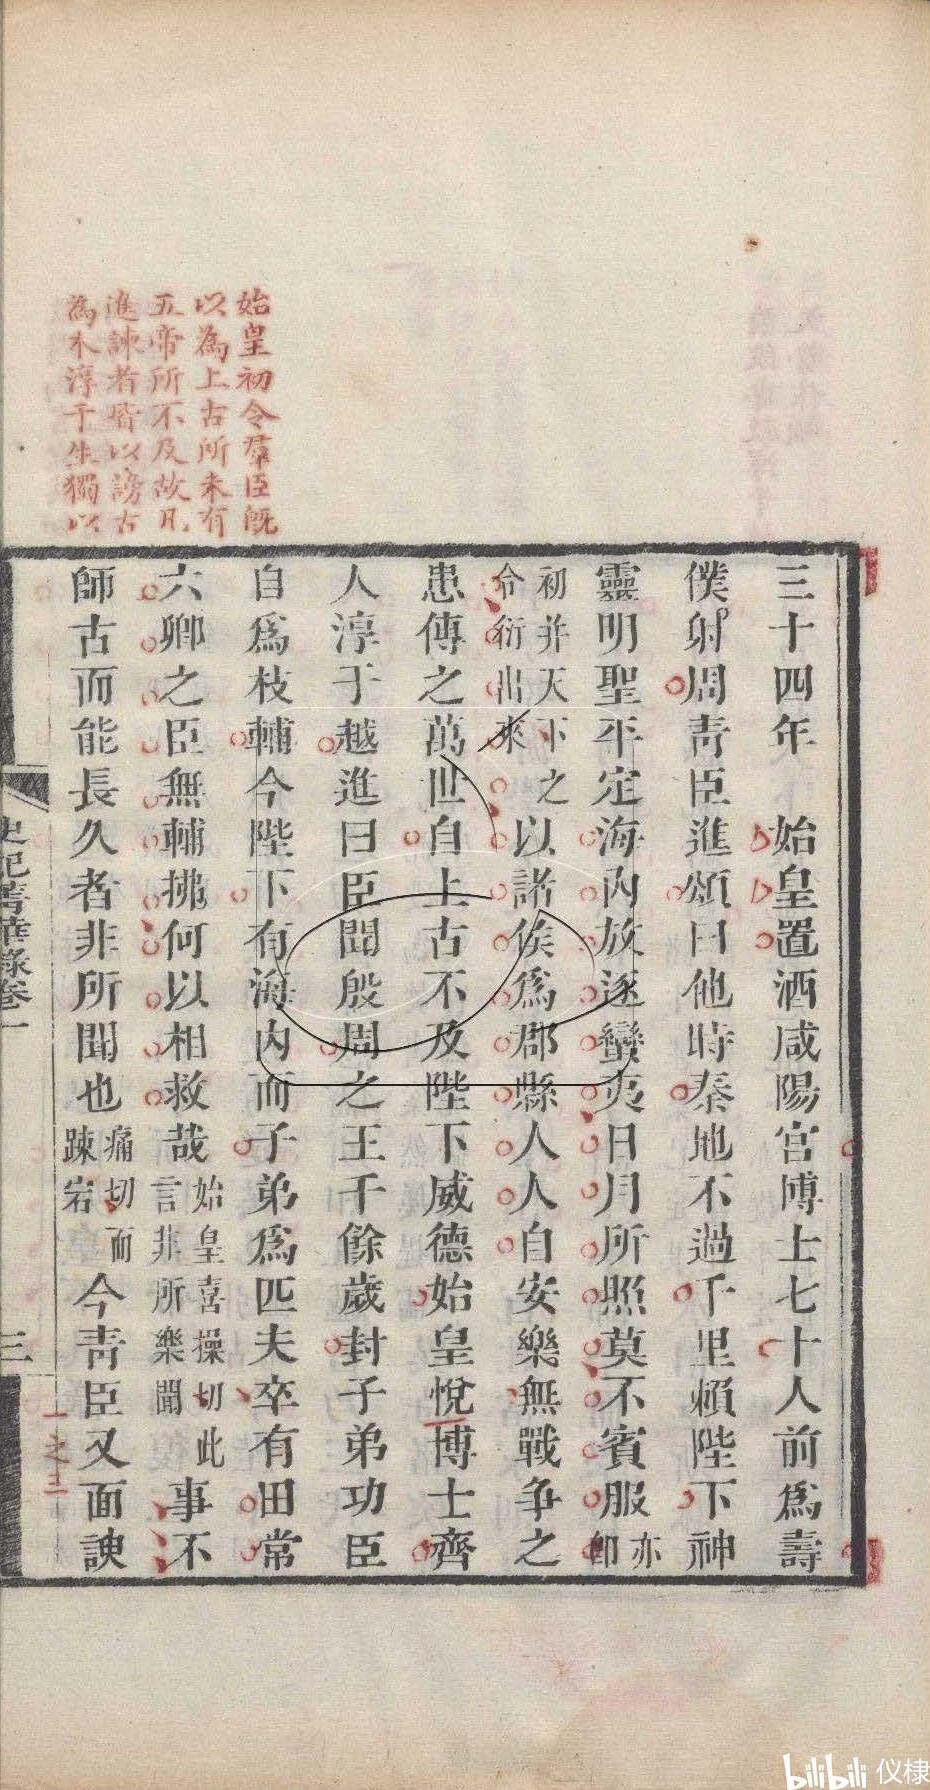 始皇初令羣臣旣
以為上古所未有
五帝所不及故凡
進諫者皆以謗古
為本淳于生獨以
三十四年 始皇置酒咸陽宮博士七十人前爲壽
僕射周靑臣進頌曰他時秦地不過千里賴陛下神
靈明聖平定海內放逐蠻夷日月所照莫不賓服亦卽
初并天下之令衍出來以諸侯爲郡縣人人自安樂無戰爭之
患傳之萬世自上古不及陛下威德始皇悅博士齊
人淳于越進曰臣聞殷周之王千餘歲封子弟功臣
自爲枝輔今陛下有海內而子弟爲匹夫卒有田常
六卿之臣無輔拂何以相救哉始皇喜操切此言非所樂聞事不
師古而能長久者非所聞也痛切而踈宕今靑臣又面諛
史記菁華錄卷一
三
一之三
bilibili 仪棣